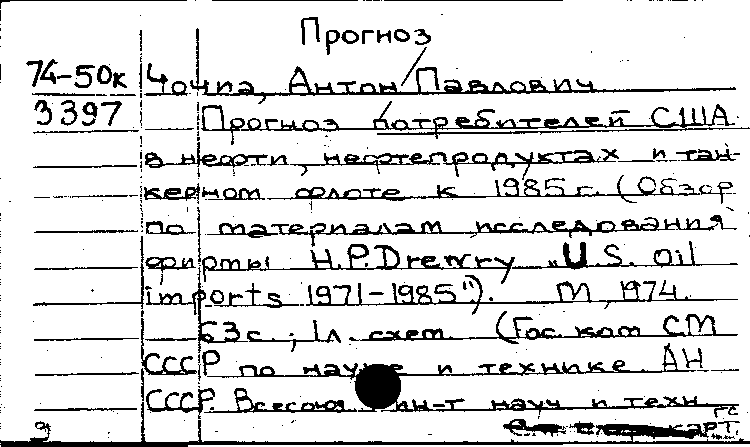 Прогноз
74-50к Чочиа, Антон Павлович
3397 Прогноз потребителей США
в нефти, нефтепродуктах и тан-
керном флоте к 1985 г. (Обзор
по материалам исследования
фирмы H.P.Drewry „U.S. oil
imports 1971-1985"). М, 1974.
63с.; 1л. схем. (Гос. ком СМ
СССР по науке и технике АН
СССР. Всесоюз ин-т науч и техн
гс
э карт.